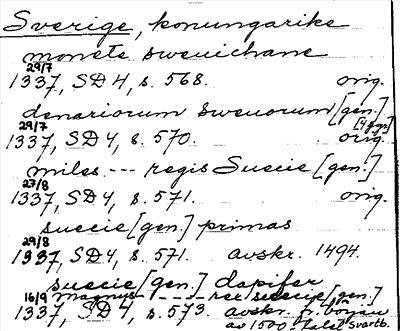 Sverige, konungarike
monete swenichane
29/7
1337, SD 4, s. 568. orig.
denariorum swenorum [gen.]
29/7 [4 ggr]
1337, SD 4, s. 570. orig.
miles --- regis Suecie [gen.]
27/8
1337, SD 4, s. 571. orig.
suecie [gen.] primas
29/8
1337, SD 4, s. 571. avskr. 1494.
suecie [gen.] dapifer
16/9 magnus ---- rex suecie [gen.]
1337, SD 4, s. 573. avskr. fr. början
av 1500-talet Svartb.